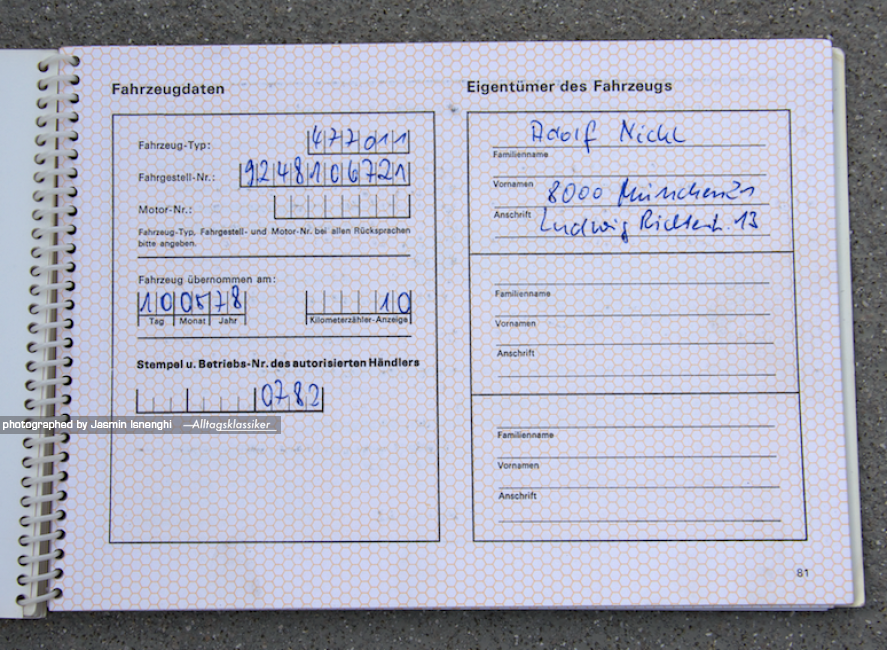 Fahrzeugdaten
Fahrzeug-Typ: 477011
Fahrgestell-Nr.: 9248106721
Motor-Nr.:
Fahrzeug-Typ, Fahrgestell- und Motor-Nr. bei allen Rücksprachen
bitte angeben.
Fahrzeug übernommen am:
10 05 78 10
Tag Monat Jahr Kilometerzähler-Anzeige
Stempel u. Betriebs-Nr. des autorisierten Händlers
0782
Eigentümer des Fahrzeugs
Adolf Nickl
Familienname
Vornamen 8000 München 21
Anschrift Ludwig Richterstr. 13
Familienname
Vornamen
Anschrift
Familienname
Vornamen
Anschrift
81
photographed by Jasmin Isnenghi —Alltagsklassiker